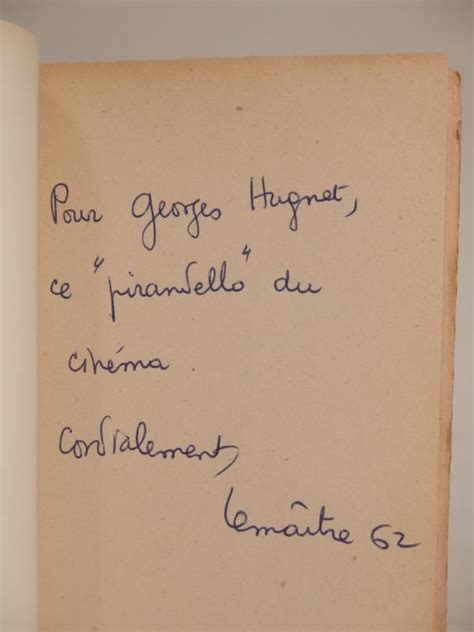 Pour Georges Hugnet,
ce "pirandello" du
cinéma.
Cordialement,
Lemaître 62